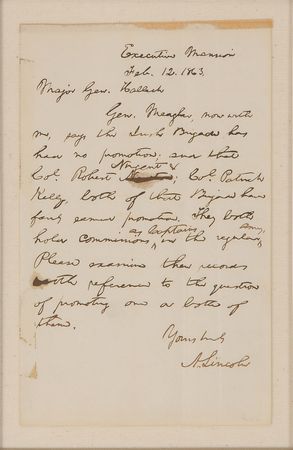 Executive Mansion
Feb. 12. 1863.
Major Gen. Halleck
Gen. Meagher, now with
me, says the Irish Brigade has
had no promotion, and that
Nugent &
Col. Robert Col. Patrick
Kelly, both of that Brigade have
fairly earned promotion. They both
as Captains army,
hold commissions, in the regular
Please examine their records
with reference to the question
of promoting one or both of
them.
Yours truly
A. Lincoln